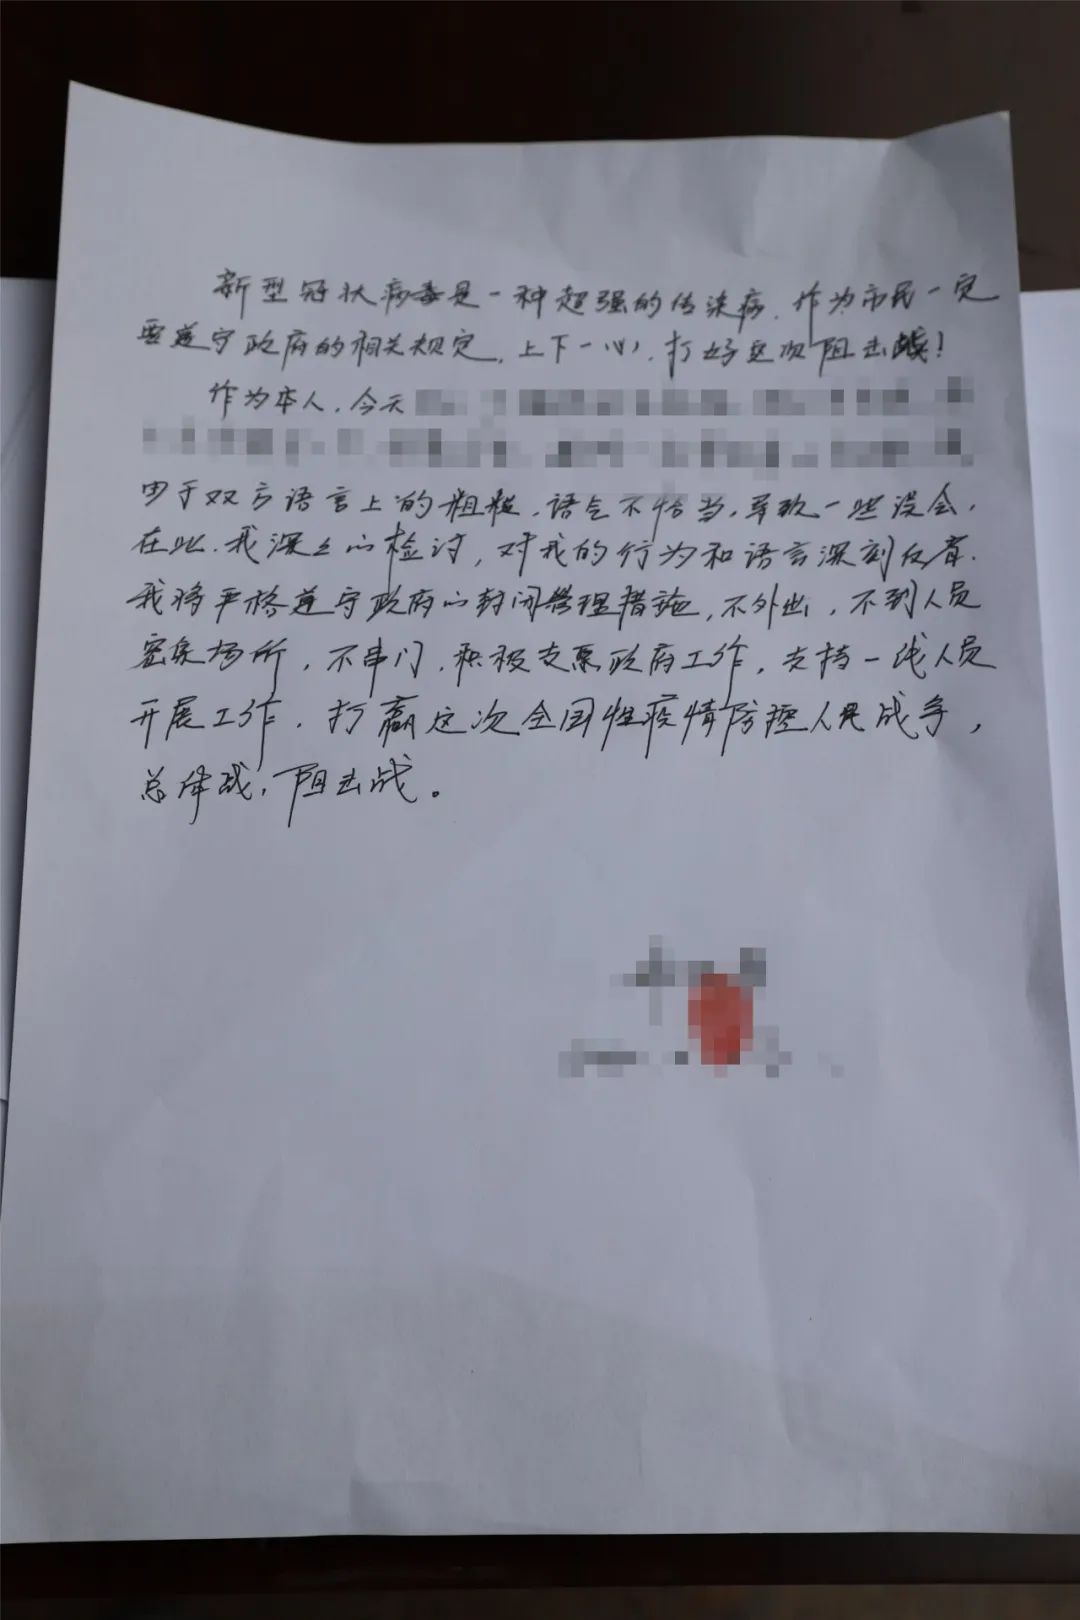 新型冠状病毒是一种超强的传染病.作为市民一定
要遵守政府的相关规定.上下一心.打好这次阻击战!
作为本人.今天
由于双方语言上的粗糙.语气不恰当.导致一些误会.
在此.我深深的检讨,对我的行为和语言深刻反省.
我将严格遵守政府的封闭管理措施,不外出,不到人员
密集场所,不串门,积极支票政府工作,支持一线人员
开展工作.打赢这次全国性疫情防控人民战争,
总体战,阻击战。